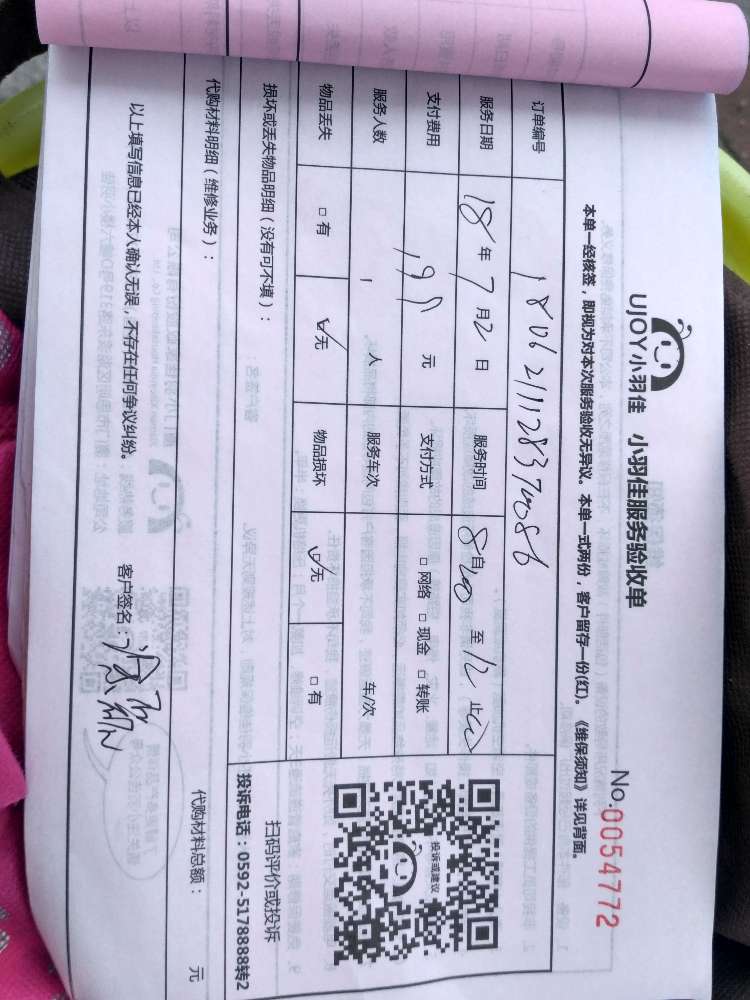 UJOY小羽佳 小羽佳服务验收单
No.0054772
本单一经核签，即视为对本次服务验收无异议。本单一式两份，客户留存一份(红)。《维保须知》详见背面。
订单编号
服务日期 18年7月2日 服务时间 8自00 至12止00
支付费用 195元 支付方式 □网络 □现金 □转账
服务人数 1人 服务车次 车/次
物品丢失 □有 ☑无 物品损坏 ☑无 □有
投诉或建议
扫码评价或投诉
投诉电话：0592-5178888转2
损坏或丢失物品明细（没有可不填）：
代购材料明细（维修业务）： 代购材料总额： 元
以上填写信息已经本人确认无误，不存在任何争议纠纷。 客户签名：